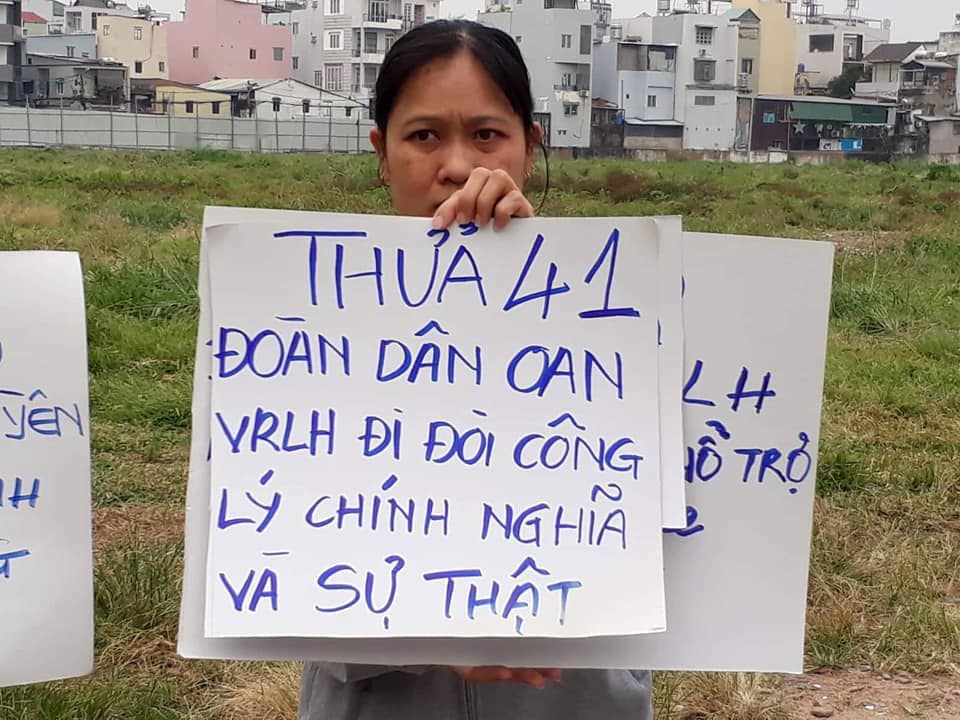 THỬA 41
ĐOÀN DÂN OAN
VRLH ĐI ĐÒI CÔNG
LÝ CHÍNH NGHĨA
VÀ SỰ THẬT
LH
HỖ TRỢ
YÊN